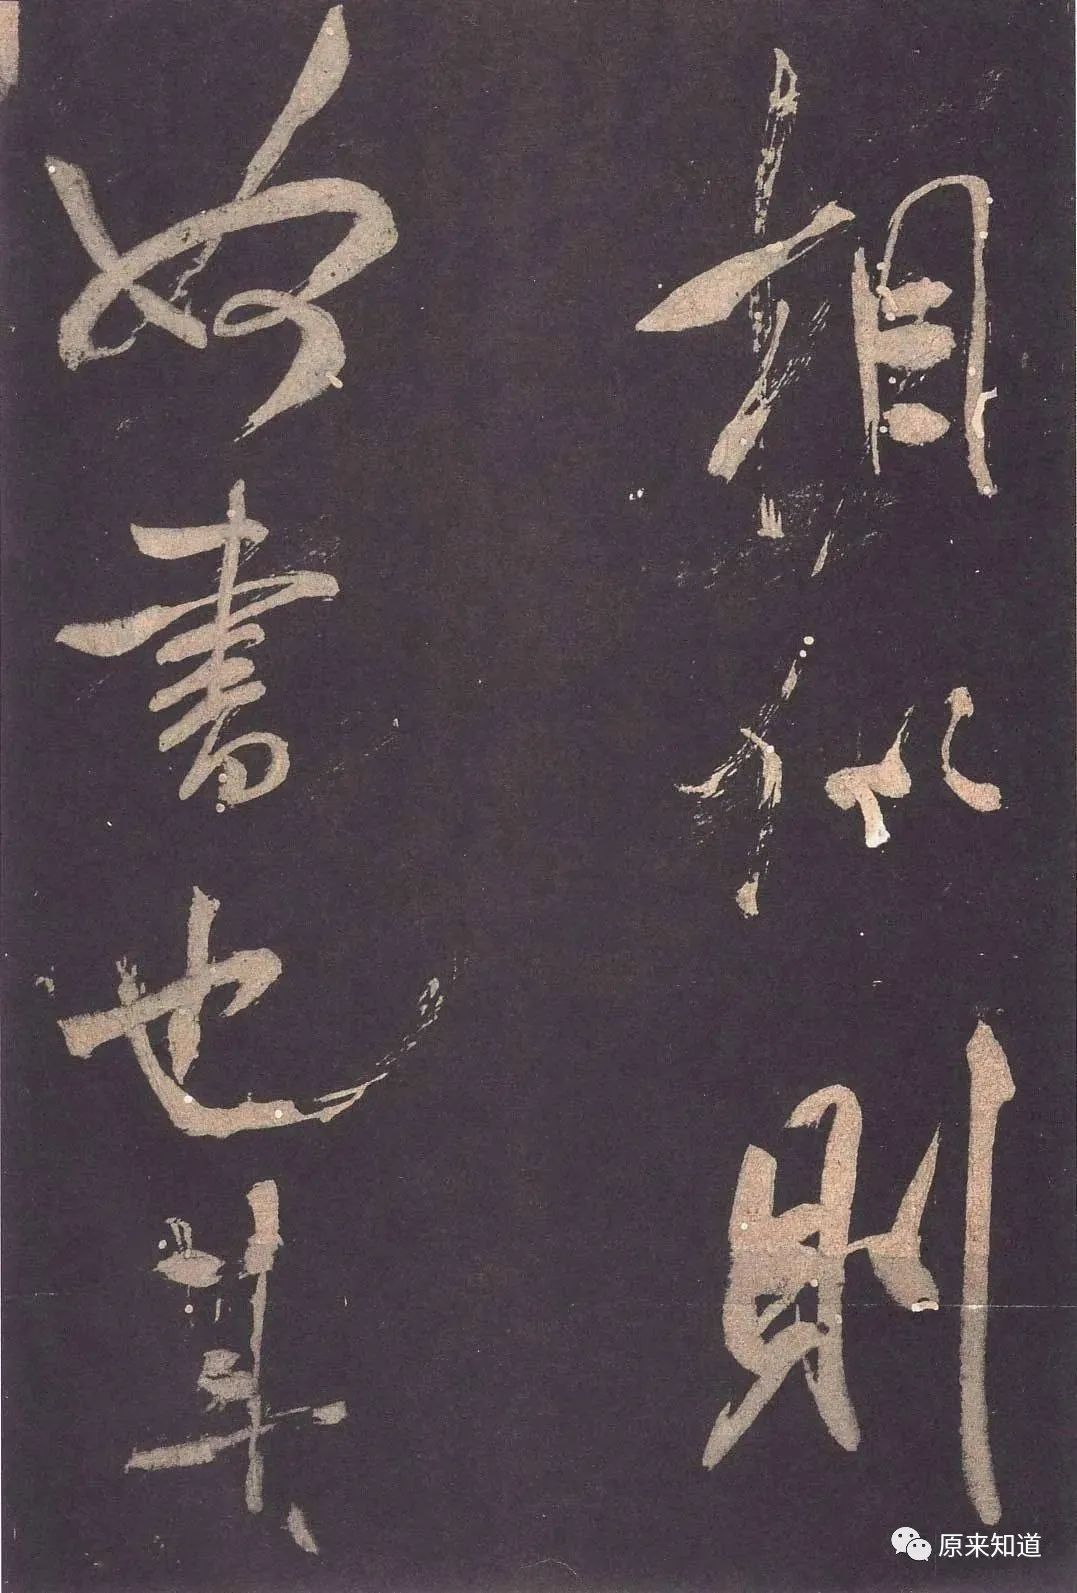 相似則
奴書也其
原来知道